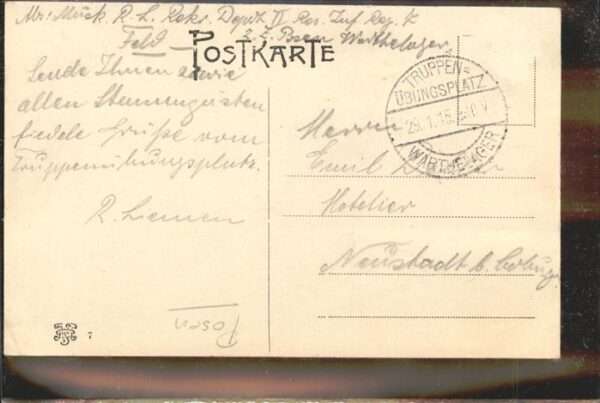 Abs: Musk. R. L. Rekr. Depot II Res. Inf. Reg. 7
z. Z. Posen Warthelager
Feld
POSTKARTE
Sende Ihnen sowie
allen Stammgästen
fiedele Grüße vom
Truppenübungsplatz.
R. Lemen
TRUPPEN=
ÜBUNGSPLATZ
29.1.16. V
WARTHELAGER
Herrn
Emil
Hotelier
Neustadt b. Coburg
Posen
7